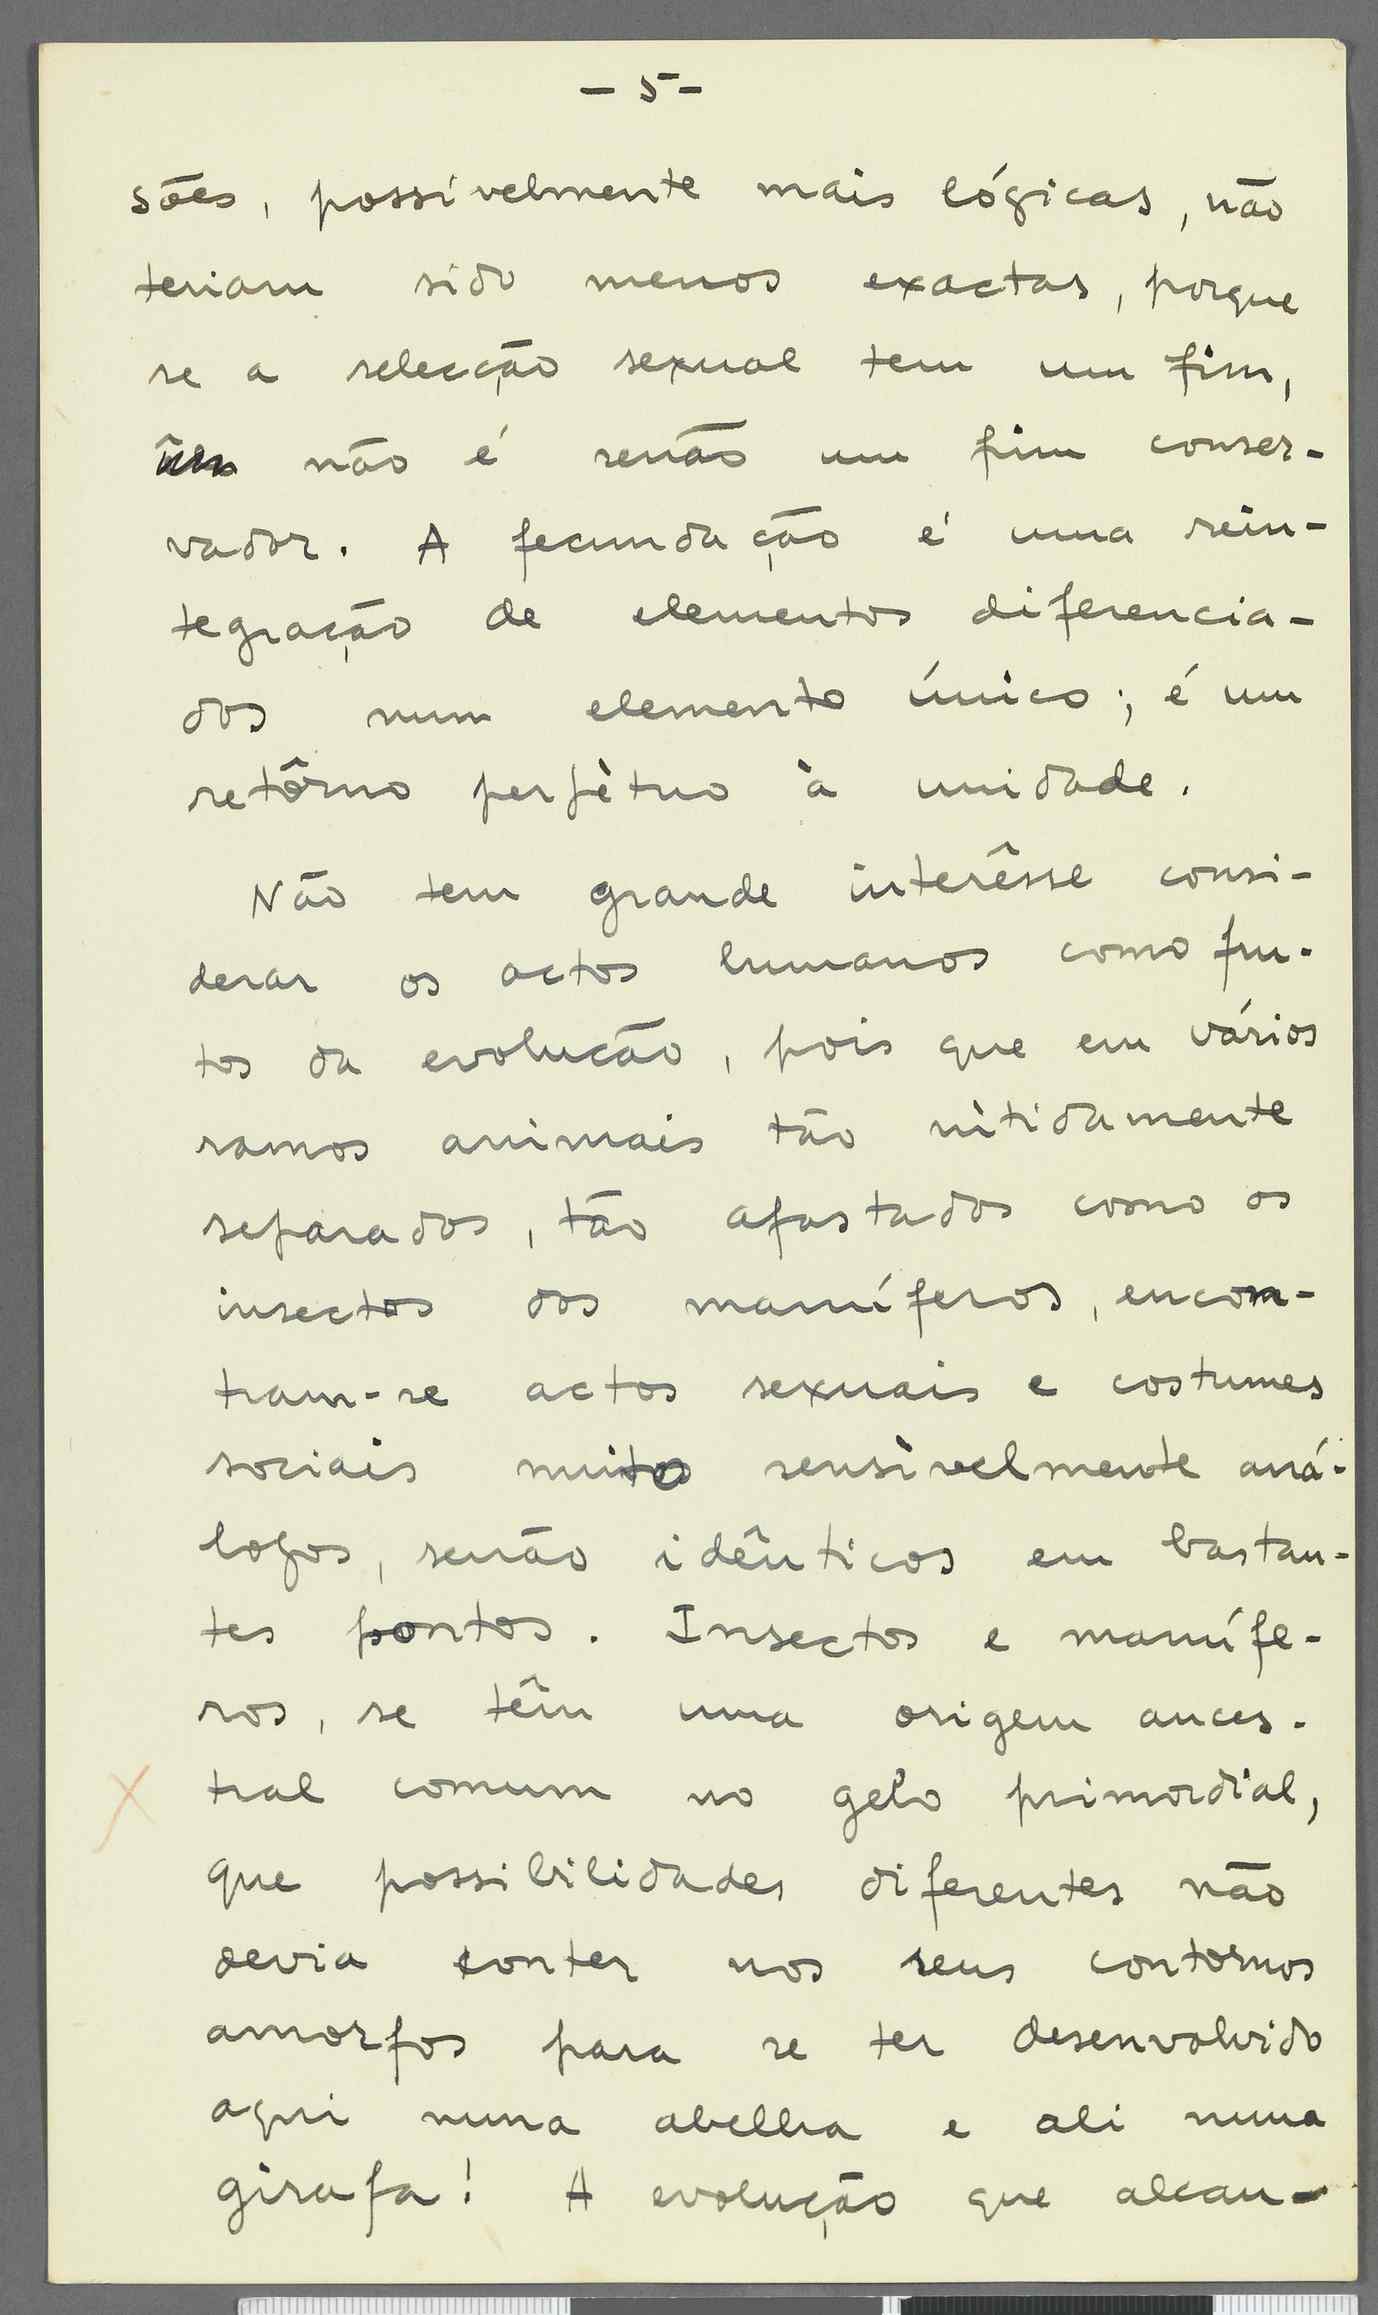 - 5 -
sões, possívelmente mais lógicas, não
teriam sido menos exactas, porque
se a selecção sexual tem um fim,
não é senão um fim conser-
vador. A fecundação é uma rein-
tegração de elementos diferencia-
dos num elemento único; é um
retôrno perpètuo à unidade.
Não tem grande interêsse consi-
derar os actos humanos como fru-
tos da evolução, pois que em vários
ramos animais tão nìtidamente
separados, tão afastados como os
insectos dos mamíferos, encon-
tram-se actos sexuais e costumes
sociais muito sensìvelmente aná-
logos, senão idênticos em bastan-
tes pontos. Insectos e mamífe-
ros, se têm uma origem ances-
tral comum no gelo primordial,
que possibilidades diferentes não
devia conter nos seus contornos
amorfos para se ter desenvolvido
aqui numa abelha e ali numa
girafa! A evolução que alcan-